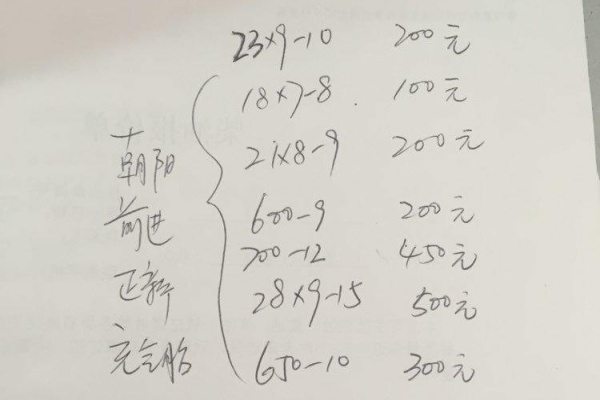 23×9-10 200元
18×7-8 100元
21×8-9 200元
朝阳
600-9 200元
前进
700-12 450元
正新
28×9-15 500元
充气胎
650-10 300元